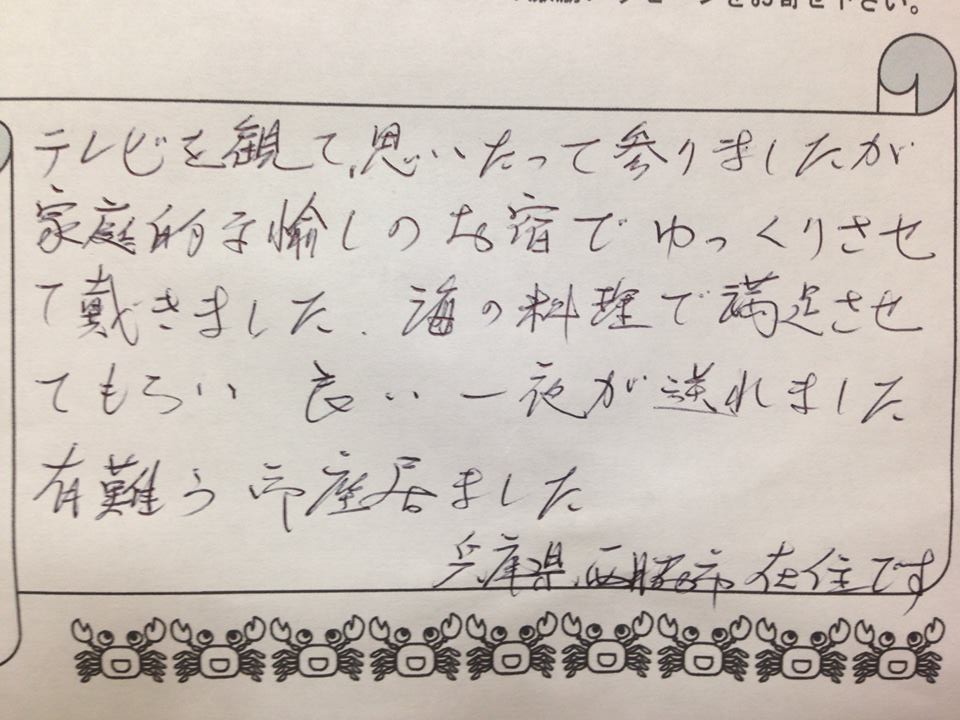 をお寄せ下さい。
テレビを観て、思いたって参りましたが
家庭的な愉しのお宿でゆっくりさせ
て戴きました。海の料理で満足させ
てもらい 良い一夜が送れました
有難う御座居ました
兵庫県西脇市在住です